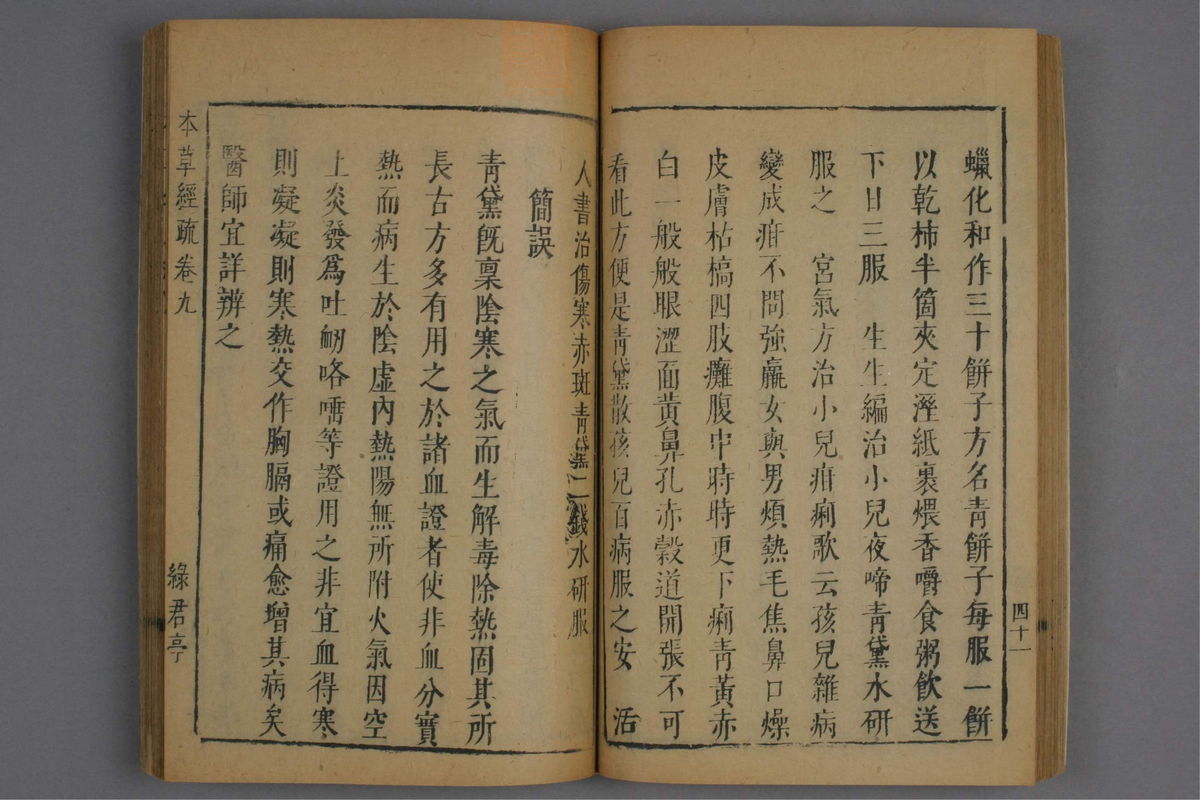 蠟化和作三十餅子方名青餅子每服一餅
以乾柿半箇夾定溼紙裹煨香嚼食粥飲送
下日三服　生生編治小兒夜啼青黛水研
服之　宮氣方治小兒疳痢歌云孩兒雜病
變成疳不問強羸女與男煩熱毛焦鼻口燥
皮膚枯槁四肢癱腹中時時更下痢青黃赤
白一般般眼澀面黃鼻孔赤穀道開張不可
看此方便是青黛散孩兒百病服之安　活
四十一
人書治傷寒赤斑青黛二錢水研服
簡誤
青黛旣稟陰寒之氣而生解毒除熱固其所
長古方多有用之於諸血證者使非血分實
熱而病生於陰虛內熱陽無所附火氣因空
上炎發爲吐衂咯唾等證用之非宜血得寒
則凝凝則寒熱交作胸膈或痛愈增其病矣
醫師宜詳辨之
本草經疏卷九
綠君亭